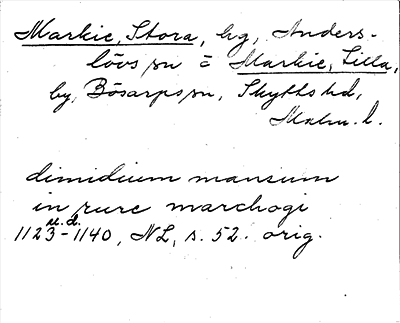 Markie, Stora, hg, Anders-
lövs sn o Markie, Lilla,
by, Bösarps sn, Skytts hd,
Malm. l.
dimidium mansum
in rure marchogi
u.d.
1123-1140, NL, s. 52. orig.